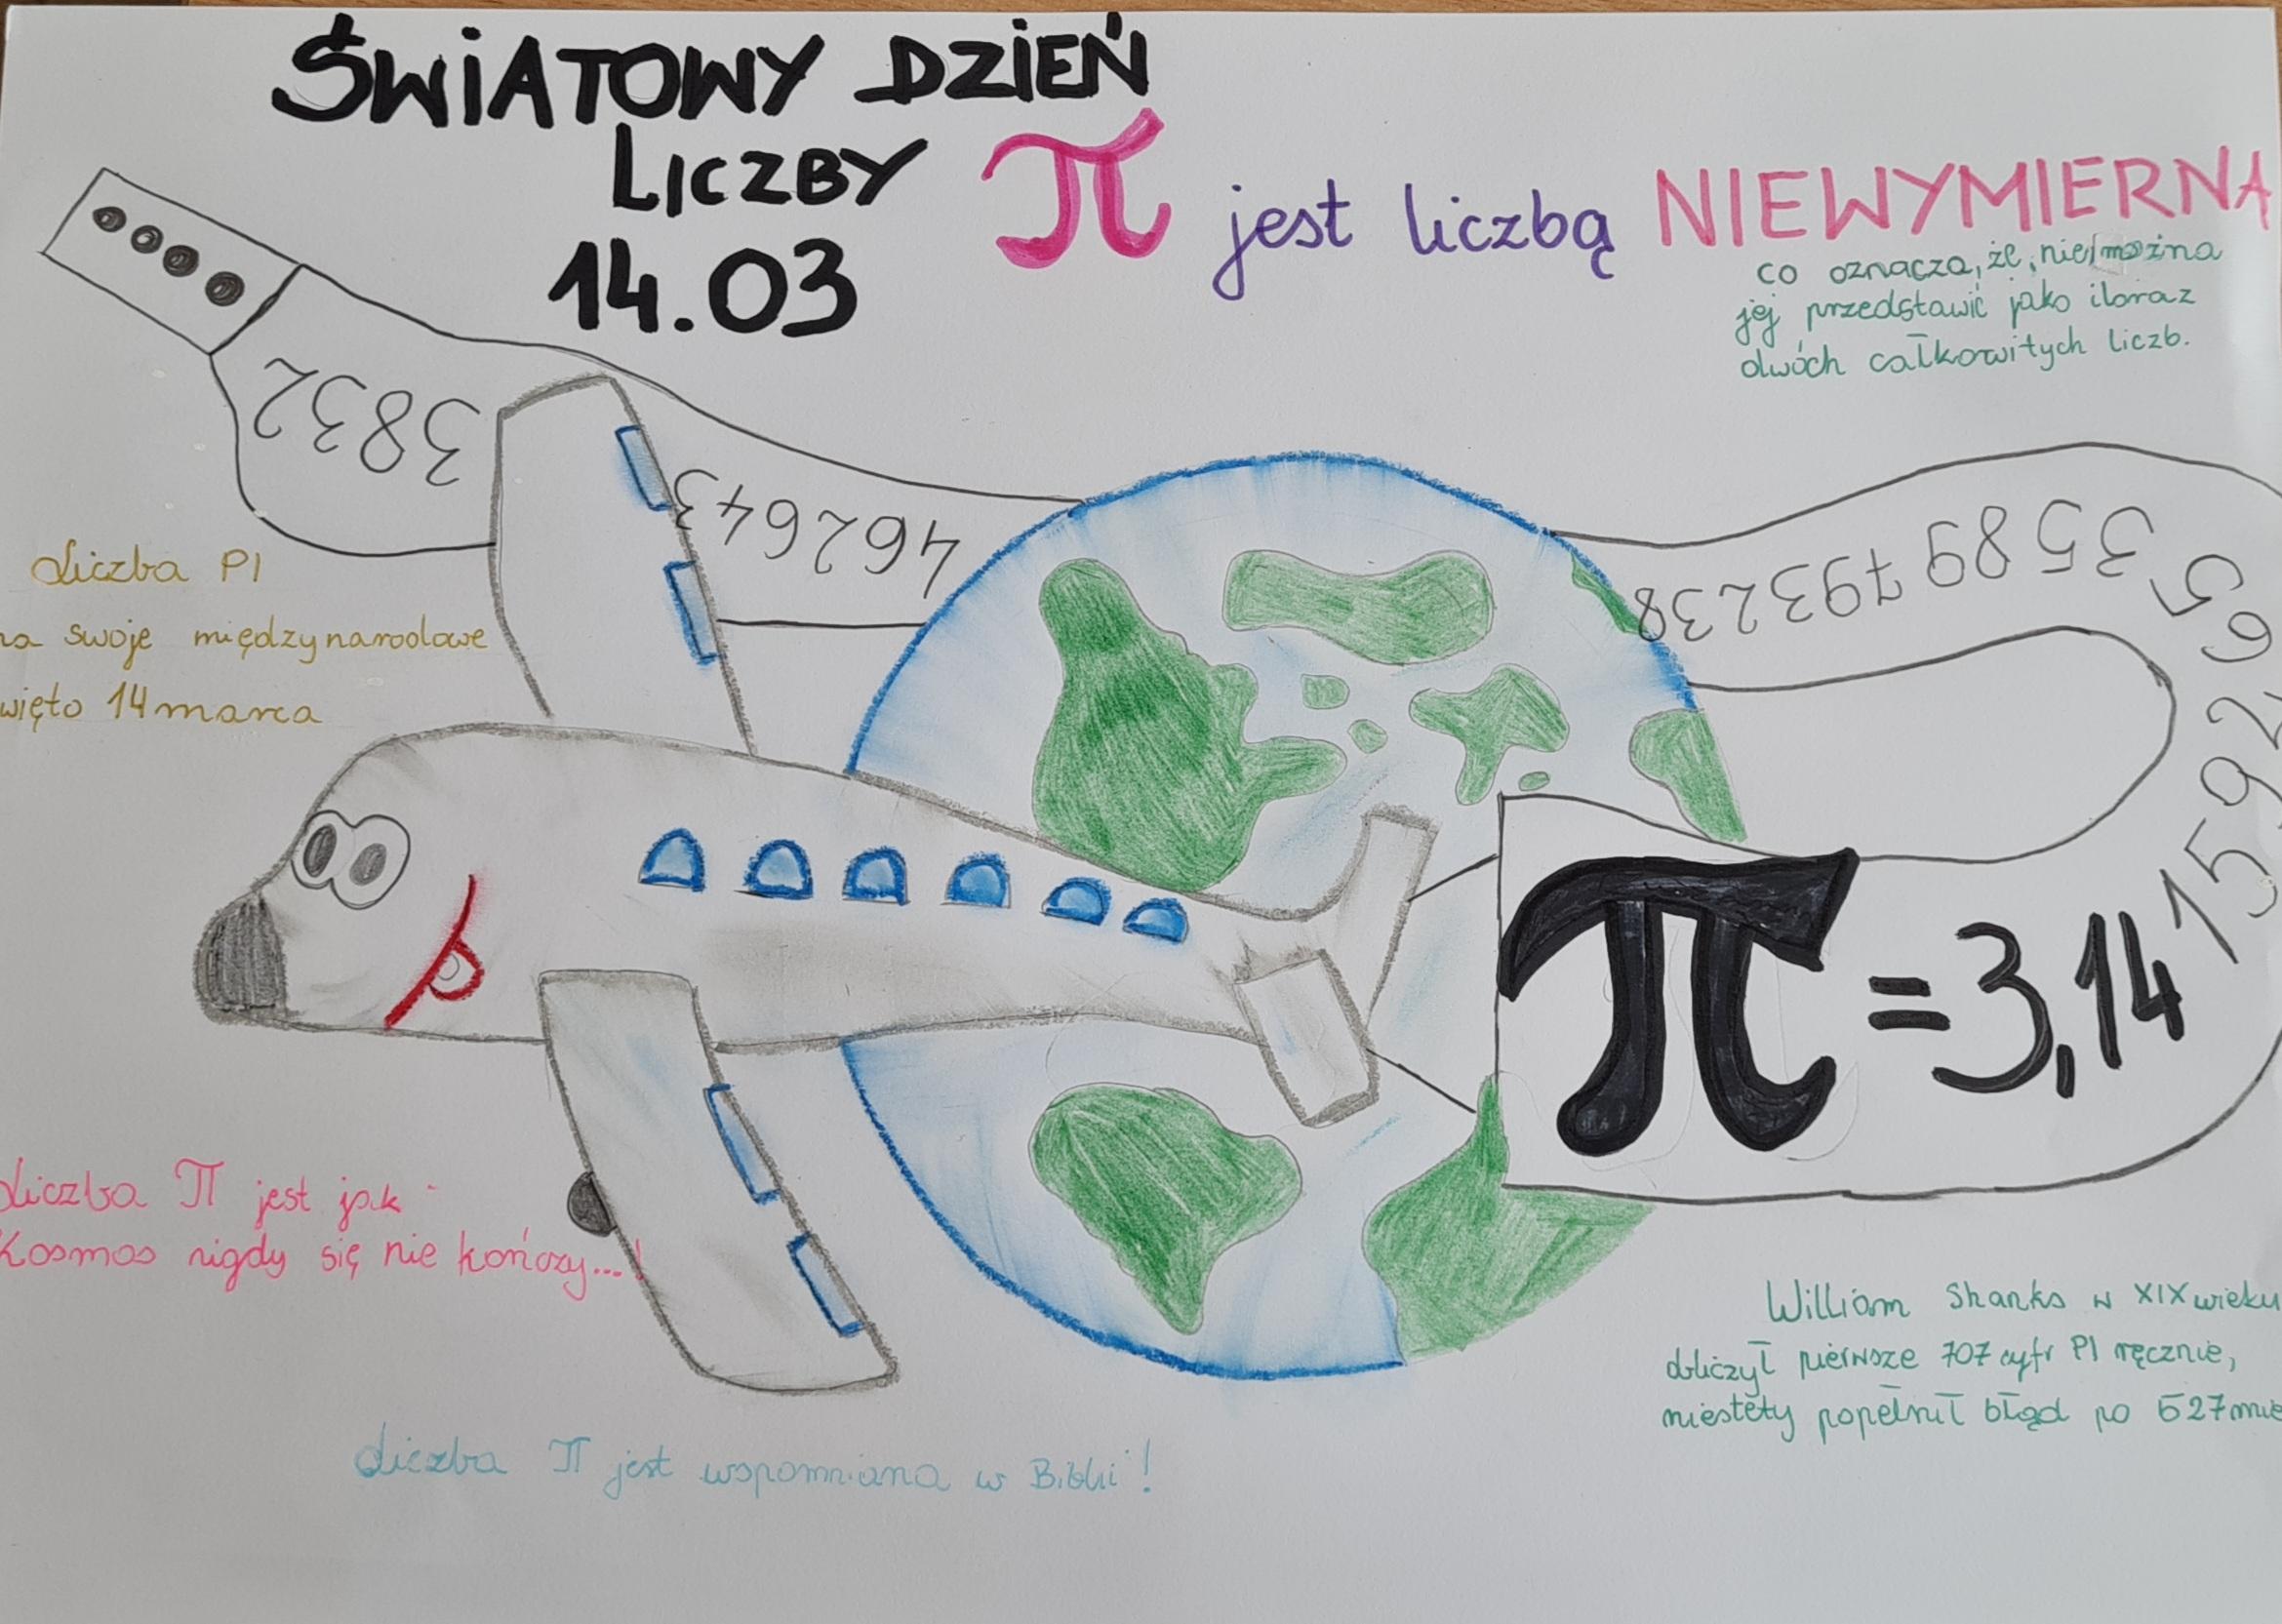 ŚWIATOWY DZIEŃ
LICZBY π jest liczbą NIEWYMIERNĄ
14.03
co oznacza, że nie można
jej przedstawić jako iloraz
dwóch całkowitych liczb.
3832
462643
3589793238
5
6
2
9
5
1
π=3,14
Liczba PI
swoje międzynarodowe
święto 14 marca
Liczba π jest jak
Kosmos nigdy się nie kończy...!
William Shanks w XIX wieku
obliczył pierwsze 707 cyfr PI ręcznie,
niestety popełnił błąd po 527
Liczba π jest wspomniana w Biblii!